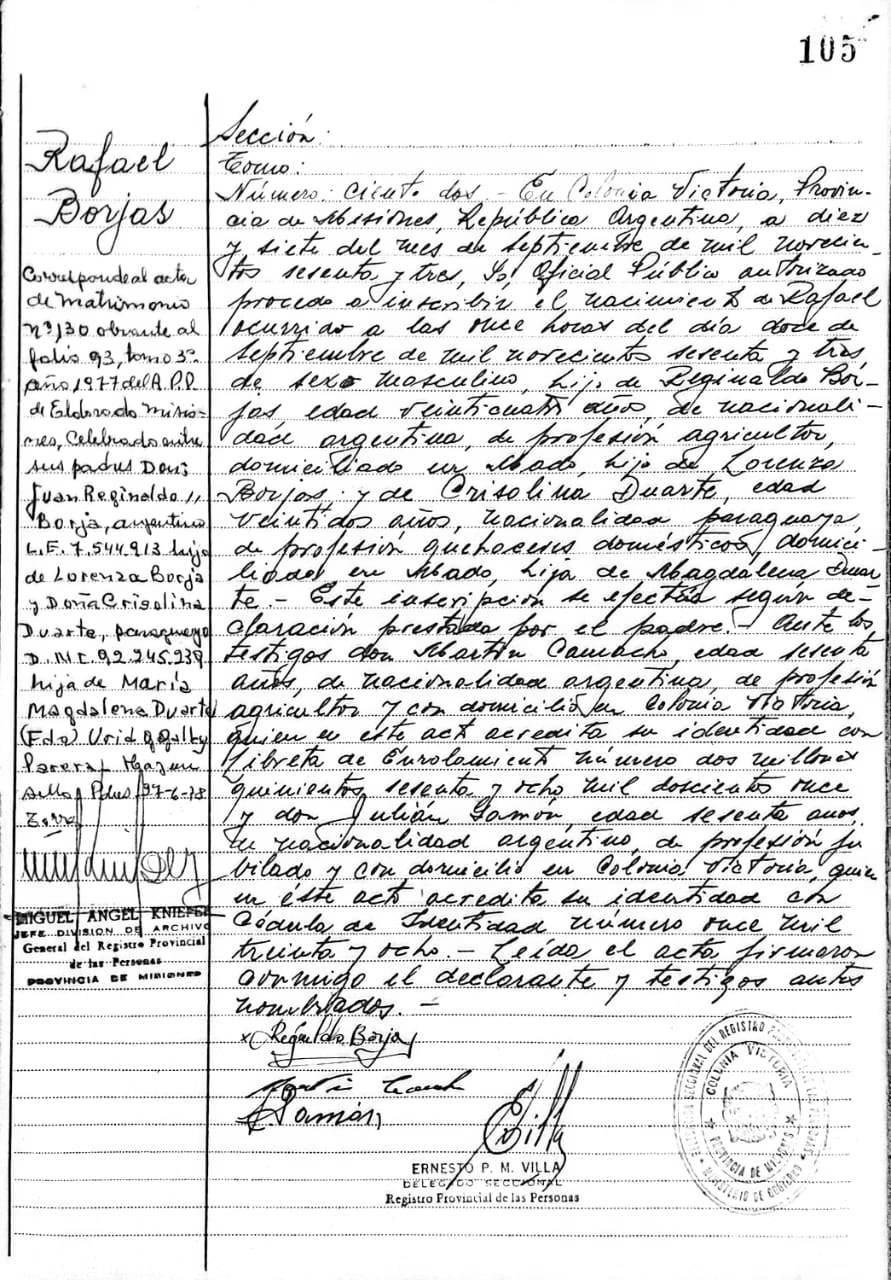 105
Rafael
Borjas
Corresponde al acta
de Matrimonio
nº 130 obrante al
folio 93, tomo 3º
año 1977 del A.P.P.
de Eldorado Misio-
nes, Celebrado entre
sus padres Don:
Juan Reginaldo
Borja, argentino
L.E. 7.544.913 hijo
de Lorenza Borja
y Doña Crisolina
Duarte, paraguaya
D.N.I. 92.245.239
hija de María
Magdalena Duarte
(Fdo)
Pdas 27-6-78
MIGUEL ANGEL KNIEPE
JEFE DIVISION DE ARCHIVO
General del Registro Provincial
de las Personas
PROVINCIA DE MISIONES
Sección:
Tomo:
Número: Ciento dos - En Colonia Victoria, Provin-
cia de Misiones, República Argentina, a diez
y siete del mes de Septiembre de mil novecien-
tos sesenta y tres, Yo, Oficial Público autorizado
procedo a inscribir el nacimiento de Rafael
ocurrido a las once horas del día doce de
Septiembre de mil novecientos sesenta y tres
de sexo masculino, hijo de Reginaldo Bor-
jas edad veinticuatro años, de nacionali-
dad argentina, de profesión agricultor,
domiciliado en Mado, hijo de Lorenza
Borjas; y de Crisolina Duarte, edad
veintidos años, nacionalidad paraguaya,
de profesión quehaceres domésticos, domici-
liada en Mado, hija de Magdalena Duar-
te. - Este inscripción se efectúa según de-
claración prestada por el padre. - Ante los
testigos don Martín Camacho, edad sesenta
años, de nacionalidad argentina, de profesión
agricultor y con domicilio en Colonia Victoria,
quien en este acto acredita su identidad con
Libreta de Enrolamiento número dos millones
quinientos sesenta y ocho mil doscientos once
y don Julián Samón, edad sesenta años,
de nacionalidad argentino, de profesión ju-
bilado y con domicilio en Colonia Victoria, quien
en éste acto acredita su identidad con
Cédula de Identidad número once mil
treinta y ocho. - Leída el acta firmaron
conmigo el declarante y testigos antes
nombrados. -
x Reginaldo Borja
ERNESTO P. M. VILLA
DELEGADO SECCIONAL
Registro Provincial de las Personas
COLONIA VICTORIA
PROVINCIA DE MISIONES
MINISTERIO DE GOBIERNO